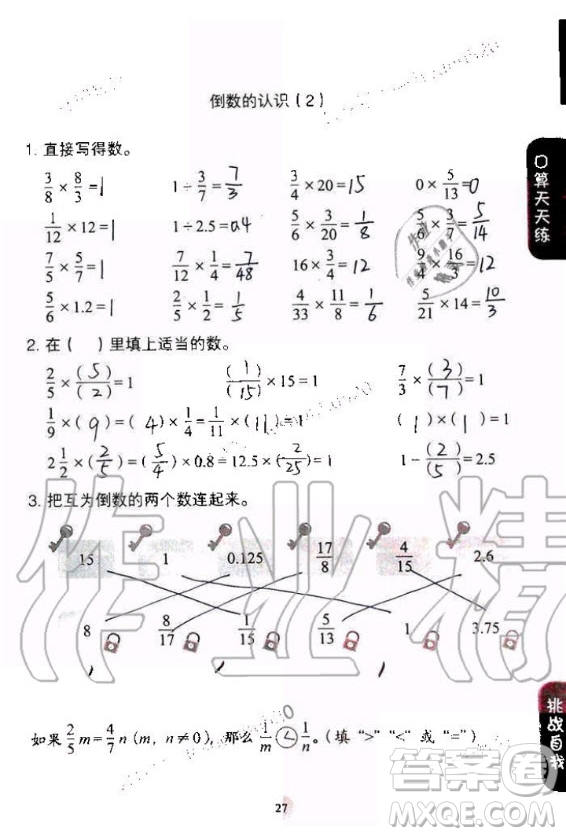 倒数的认识(2)
1. 直接写得数。
3/8 × 8/3 = 1  1 ÷ 3/7 = 7/3  3/4 × 20 = 15  0 × 5/13 = 0
1/12 × 12 = 1  1 ÷ 2.5 = 0.4  5/6 × 3/20 = 1/8  5/6 × 3/7 = 5/14
7/5 × 5/7 = 1  7/12 × 1/4 = 7/48  16 × 3/4 = 12  9/4 × 16/3 = 12
5/6 × 1.2 = 1  2/5 × 1/2 = 1/5  4/33 × 11/8 = 1/6  5/21 × 14 = 10/3
2. 在( )里填上适当的数。
2/5 × (5)/(2) = 1  (1)/(15) × 15 = 1  7/3 × (3)/(7) = 1
1/9 × (9) = (4) × 1/4 = 1/11 × (11) = 1  (1) × (1) = 1
2 1/2 × (2/5) = (5/4) × 0.8 = 12.5 × (2/25) = 1  1 − (2)/(5) = 2.5
3. 把互为倒数的两个数连起来。
15  1  0.125  17/8  4/15  2.6
8  8/17  1/15  5/13  1  3.75
如果 2/5 m = 4/7 n (m, n ≠ 0), 那么 1/m < 1/n。(填 ">" "<" 或 "=")
27
口算天天练
挑战自我
作业精
答案圈
MXQE.COM